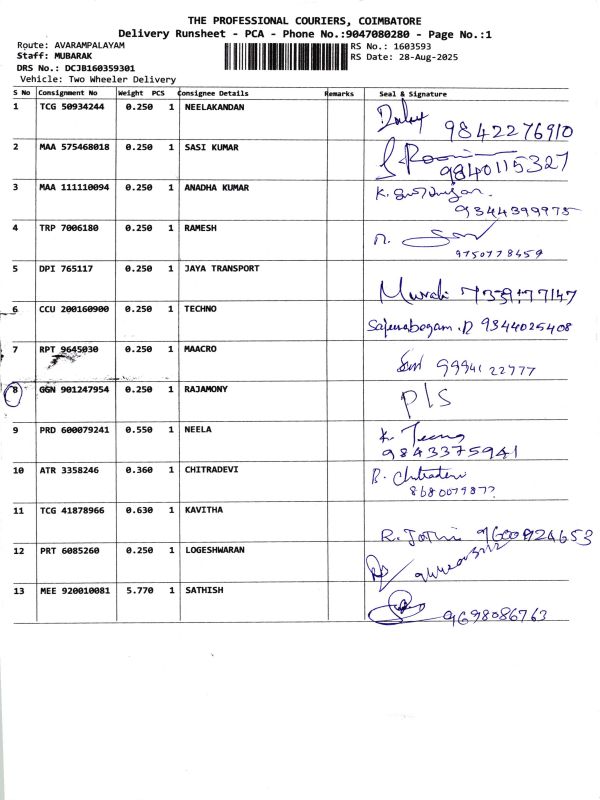 THE PROFESSIONAL COURIERS, COIMBATORE
Delivery Runsheet - PCA - Phone No.:9047080280 - Page No.:1
Route: AVARAMPALAYAM RS No.: 1603593
Staff: MUBARAK RS Date: 28-Aug-2025
DRS No.: DCJB160359301
Vehicle: Two Wheeler Delivery
S No Consignment No Weight PCS Consignee Details Remarks Seal & Signature
1 TCG 50934244 0.250 1 NEELAKANDAN
9842276910
2 MAA 575468018 0.250 1 SASI KUMAR
9840115327
3 MAA 111110094 0.250 1 ANADHA KUMAR K.
9344399975
4 TRP 7006180 0.250 1 RAMESH
9750778459
5 DPI 765117 0.250 1 JAYA TRANSPORT
Murali
6 CCU 200160900 0.250 1 TECHNO
9344025408
7 RPT 9645030 0.250 1 MAACRO
9994122777
8 GGN 901247954 0.250 1 RAJAMONY P/S
9 PRD 600079241 0.550 1 NEELA K.
9843375941
10 ATR 3358246 0.360 1 CHITRADEVI B. Chitradevi
11 TCG 41878966 0.630 1 KAVITHA
R. Jothi 9600924653
12 PRT 6085260 0.250 1 LOGESHWARAN
13 MEE 920010081 5.770 1 SATHISH
9698086763